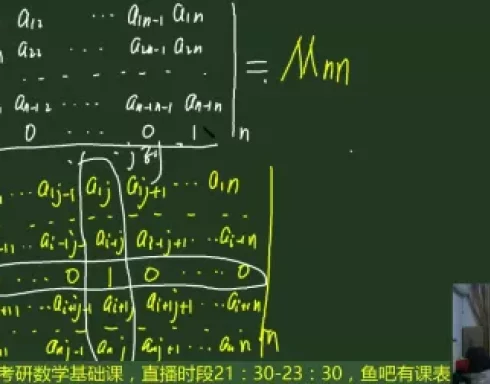 a₁₂ ·· a₁ₙ₋₁ a₁ₙ
a₂₂ ·· a₂ₙ₋₁ a₂ₙ
= Mₙₙ
aₙ₋₁₂ ···· aₙ₋₁ₙ₋₁ aₙ₋₁ₙ
0 ··· 0 1 n
·· a₁ⱼ₋₁ a₁ⱼ a₁ⱼ₊₁ ··· a₁ₙ
·· aᵢ₋₁ⱼ₋ aᵢ₋₁ⱼ aᵢ₋₁ⱼ₊₁ ·· aᵢ₋₁ₙ
··· 0 1 0 ···· 0
··· aᵢ₊₁ⱼ₋₁ aᵢ₊₁ⱼ aᵢ₊₁ⱼ₊₁ ·· aᵢ₊₁ₙ
aₙⱼ₋₁ aₙⱼ aₙⱼ₊₁ ··· aₙₙ n
考研数学基础课，直播时段21：30-23：30，鱼吧有课表